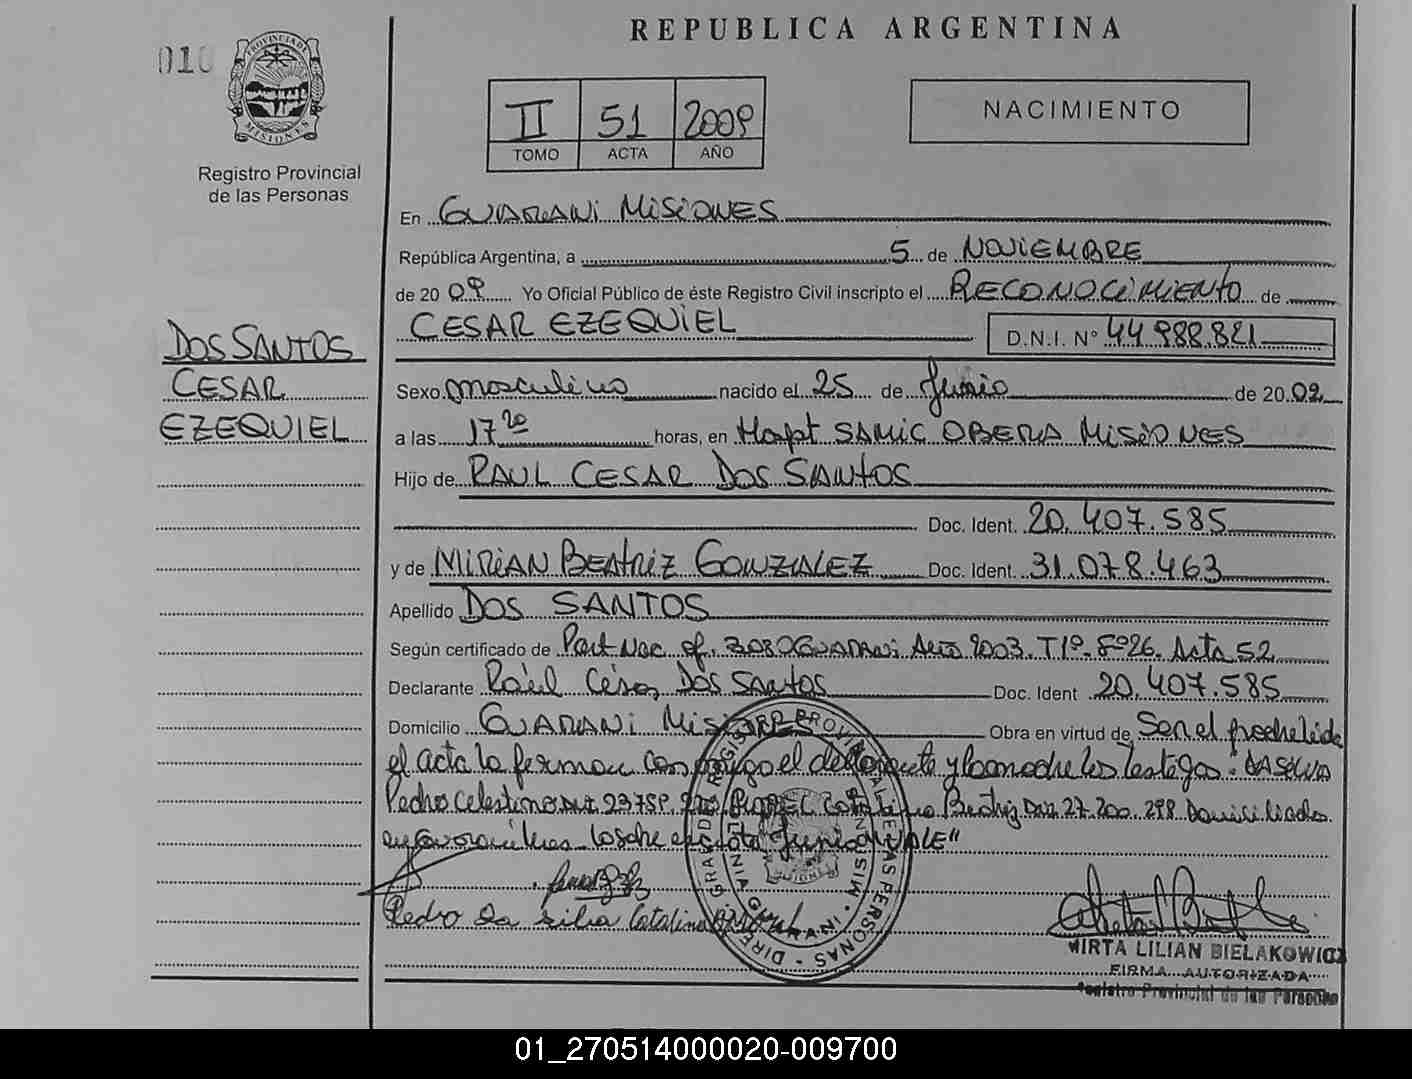 REPUBLICA ARGENTINA
010
PROVINCIA DE MISIONES
Registro Provincial
de las Personas
II 51 2009
TOMO ACTA AÑO
NACIMIENTO
En GUARANI MISIONES
República Argentina, a 5 de NOVIEMBRE
de 20 09 Yo Oficial Público de éste Registro Civil inscripto el RECONOCIMIENTO de
CESAR EZEQUIEL D.N.I. N° 44.988.821
DOS SANTOS
CESAR
EZEQUIEL
Sexo masculino nacido el 25 de Junio de 20 02
a las 17 20 horas, en Hospt SAMIC OBERA MISIONES
Hijo de RAUL CESAR DOS SANTOS
Doc. Ident. 20.407.585
y de MIRIAN BEATRIZ GONZALEZ Doc. Ident. 31.078.463
Apellido DOS SANTOS
Según certificado de Part Nac of. 3080 GUARANI Año 2003. T1º. Fº26. Acta 52
Declarante Raúl César Dos SANTOS Doc. Ident 20.407.585
Domicilio GUARANI MISIONES Obra en virtud de Ser el padre leida
el acta la firman conmigo el declarante y la madre los testigos: DA SILVA
Pedro Celestino DNI Beatriz DNI 27.200.298 Domiciliados
en Junio VALE"
Pedro Da Silva Catalina
DIREC. GRAL. DE REGISTRO PROVINCIAL DE LAS PERSONAS
GUARANI - MISIONES
MIRTA LILIAN BIELAKOWICZ
FIRMA AUTORIZADA
Registro Provincial de las Personas
01_270514000020-009700